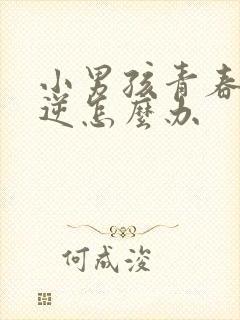 小男孩青春
逆怎麼办
何成浚